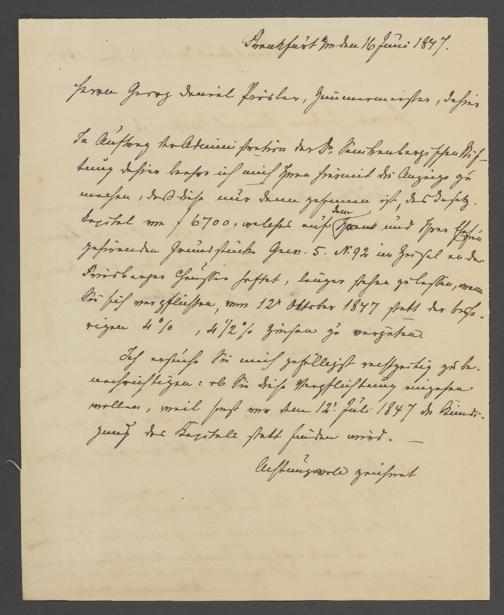 Frankfurt a/m den 16 Juni 1847.
Herrn Georg Daniel Rössler, Zimmermeister, dahier
Im Auftrag der Administration der Dr. Senkenbergischen Stif-
tung dahier beehre ich mich Ihnen hiermit die Anzeige zu
machen, daß diese nur dann gesonnen ist, das Insatz-
Capital von f 6700, welches auf dem Ihnen und Ihrer
gehörenden Grundstücke Gew. 5. N. 92 im an der
Friedberger Chaussee haftet, länger stehen zu lassen, wenn
Sie sich verpflichten, vom 12n Oktober 1847 statt der bishe-
rigen 4 %, 4 1/2 % Zinsen zu vergüten.
Ich ersuche Sie mich gefälligst rechtzeitig zu be-
nachrichtigen: ob Sie diese Verpflichtung eingehen
wollen, weil sonst vor dem 12. Juli 1847 die Kündi-
gung des Kapitals statt finden wird. —
Achtungsvoll zeichnet